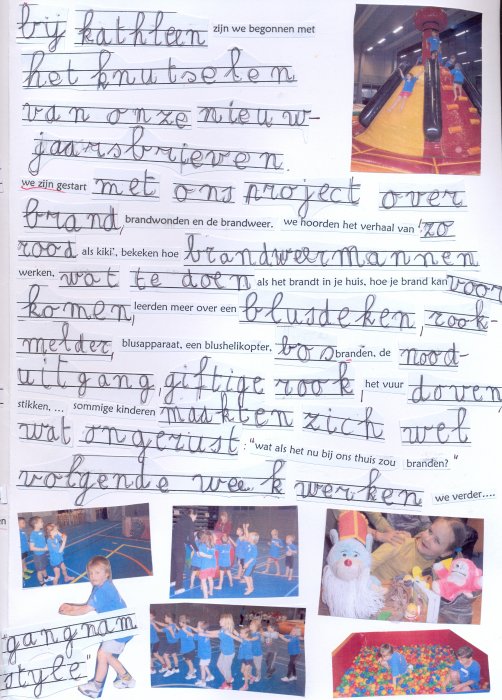 bij kathleen zijn we begonnen met
het knutselen
van onze nieuw-
jaarsbrieven.
we zijn gestart met ons project over
brand, brandwonden en de brandweer. we hoorden het verhaal van 'zo
rood als kiki', bekeken hoe brandweermannen
werken, wat te doen als het brandt in je huis, hoe je brand kan voor
komen, leerden meer over een blusdeken, rook-
melder, blusapparaat, een blushelikopter, bosbranden, de nood-
uitgang, giftige rook, het vuur doven
stikken, ... sommige kinderen maakten zich wel
wat ongerust: "wat als het nu bij ons thuis zou branden?"
volgende week werken we verder....
"gangnam
style"